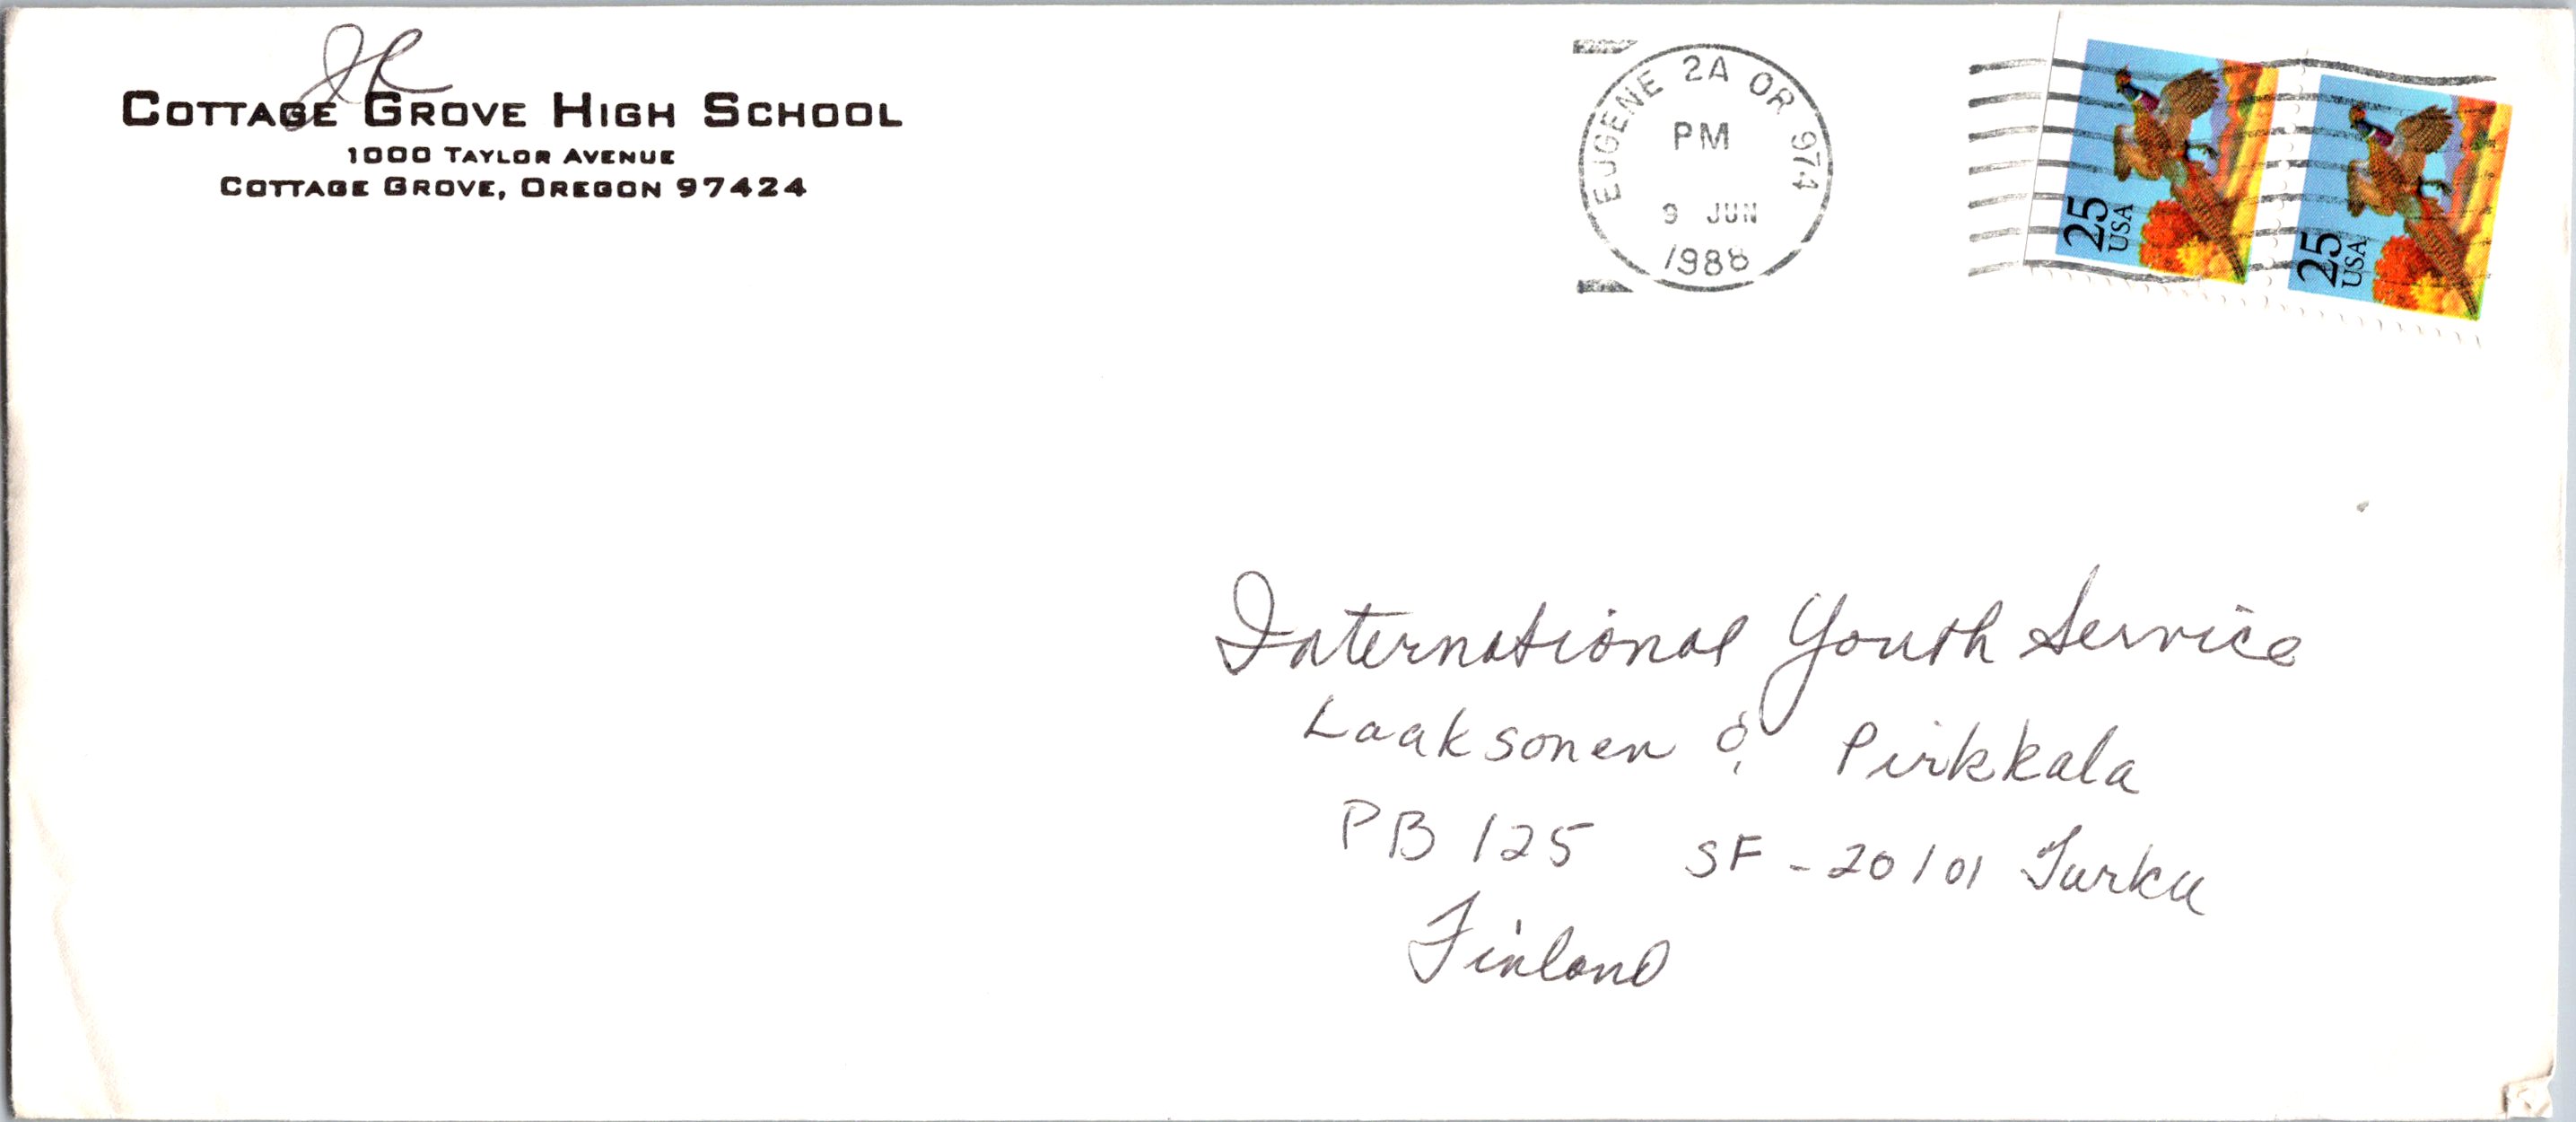 COTTAGE GROVE HIGH SCHOOL
1000 TAYLOR AVENUE
COTTAGE GROVE, OREGON 97424
EUGENE 2A OR 974
PM
9 JUN
1988
25
USA
25
USA
International Youth Service
Laaksonen & Pirkkala
PB 125 SF-20101 Turku
Finland